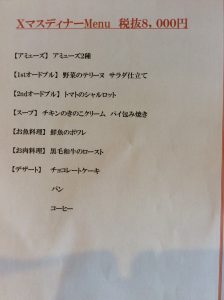 XマスディナーMenu 税抜8,000円
【アミューズ】 アミューズ2種
【1stオードブル】 野菜のテリーヌ サラダ仕立て
【2ndオードブル】 トマトのシャルロット
【スープ】 チキンのきのこクリーム パイ包み焼き
【お魚料理】 鮮魚のポワレ
【お肉料理】 黒毛和牛のロースト
【デザート】 チョコレートケーキ
パン
コーヒー